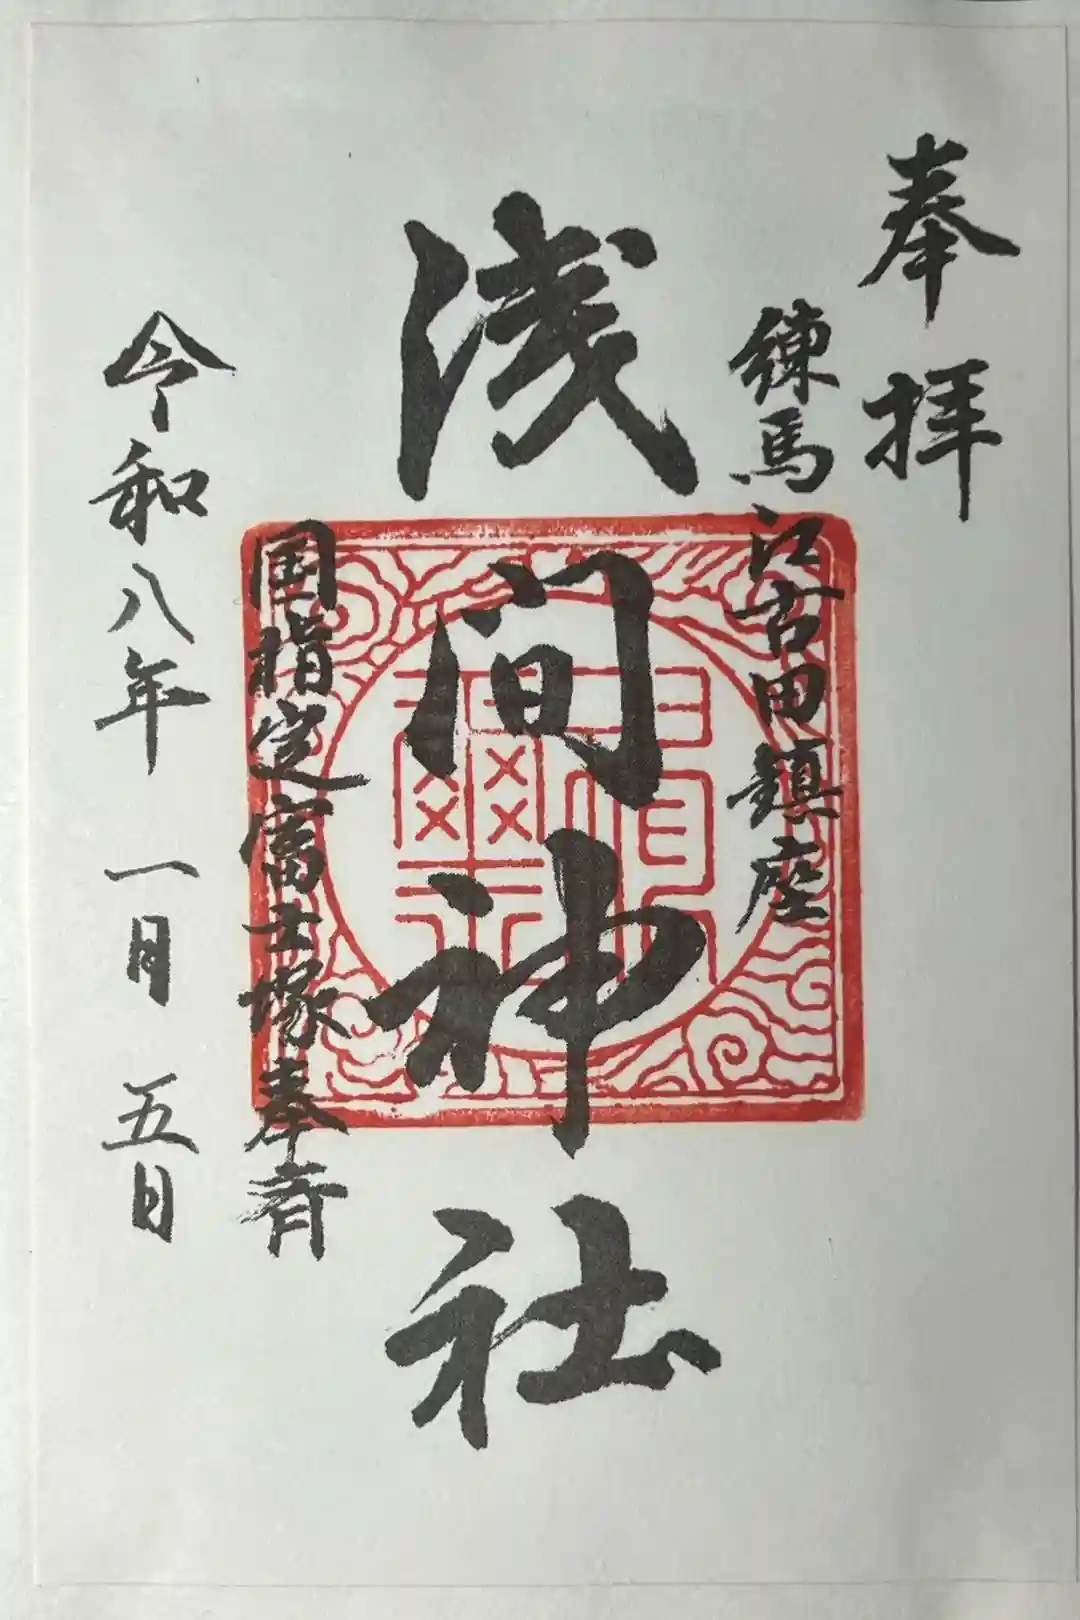 奉拝
練馬江古田鎮座
浅間神社
国指定富士塚奉斉
令和八年一月五日